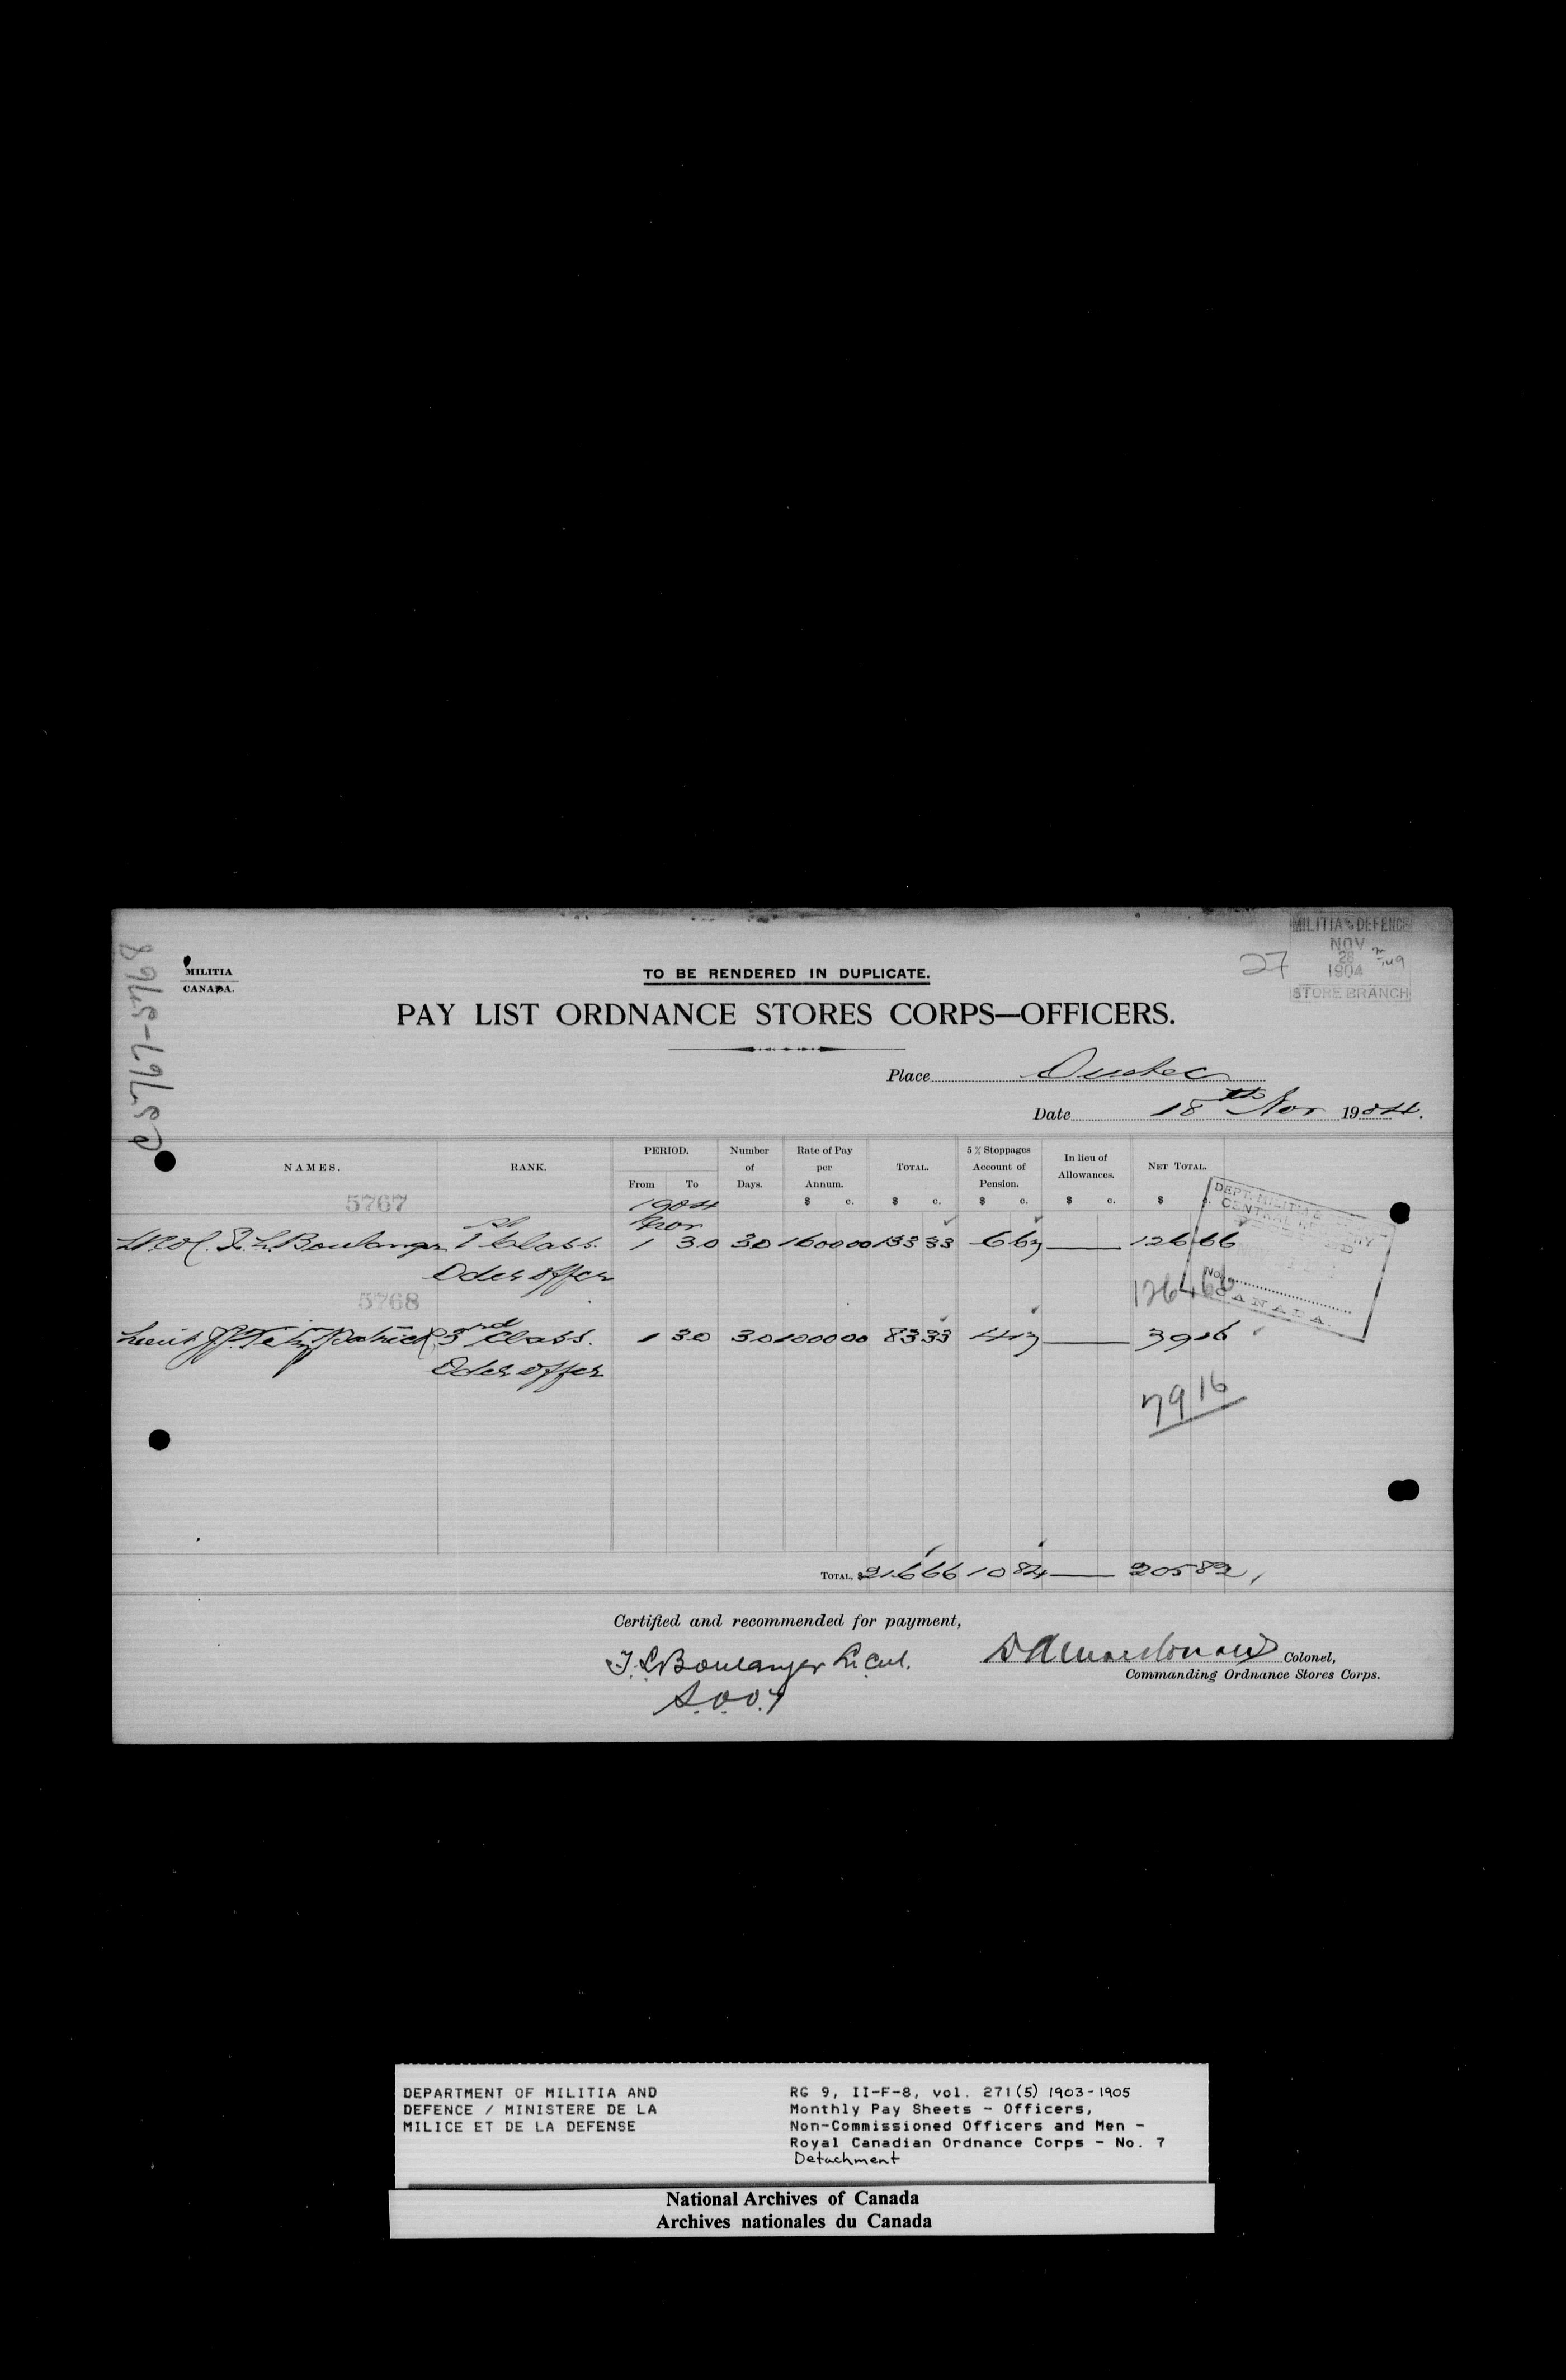 MILITIA & DEFENCE
NOV
28
1904
STORE BRANCH
27
MILITIA
CANADA.
TO BE RENDERED IN DUPLICATE.
PAY LIST ORDNANCE STORES CORPS—OFFICERS.
Place Quebec
Date 18th Nov 1904.
5767-5768
NAMES. RANK. PERIOD. Number of Days. Rate of Pay per Annum. TOTAL. 5 % Stoppages Account of Pension. In lieu of Allowances. NET TOTAL.
From To $ c. $ c. $ c. $ c. $ c.
5767 1904
Nov
Lt Col. Boulanger 1st Class. 1 30 30 1600 00 133 33 6 67 126 66
126 66
5768
Lieut 3rd Class. 1 30 30 1000 00 83 33 4 17 79 16
79 16
DEPT. MILITIA &
CENTRAL REGISTRY
NOV
No.
CANADA.
TOTAL, $ 216 66 10 84 205 82
Certified and recommended for payment,
Boulanger Lt Col.
S.O.O. 7
Colonel,
Commanding Ordnance Stores Corps.
DEPARTMENT OF MILITIA AND
DEFENCE / MINISTERE DE LA
MILICE ET DE LA DEFENSE
RG 9, II-F-8, vol. 271(5) 1903-1905
Monthly Pay Sheets - Officers,
Non-Commissioned Officers and Men -
Royal Canadian Ordnance Corps - No. 7
Detachment
National Archives of Canada
Archives nationales du Canada